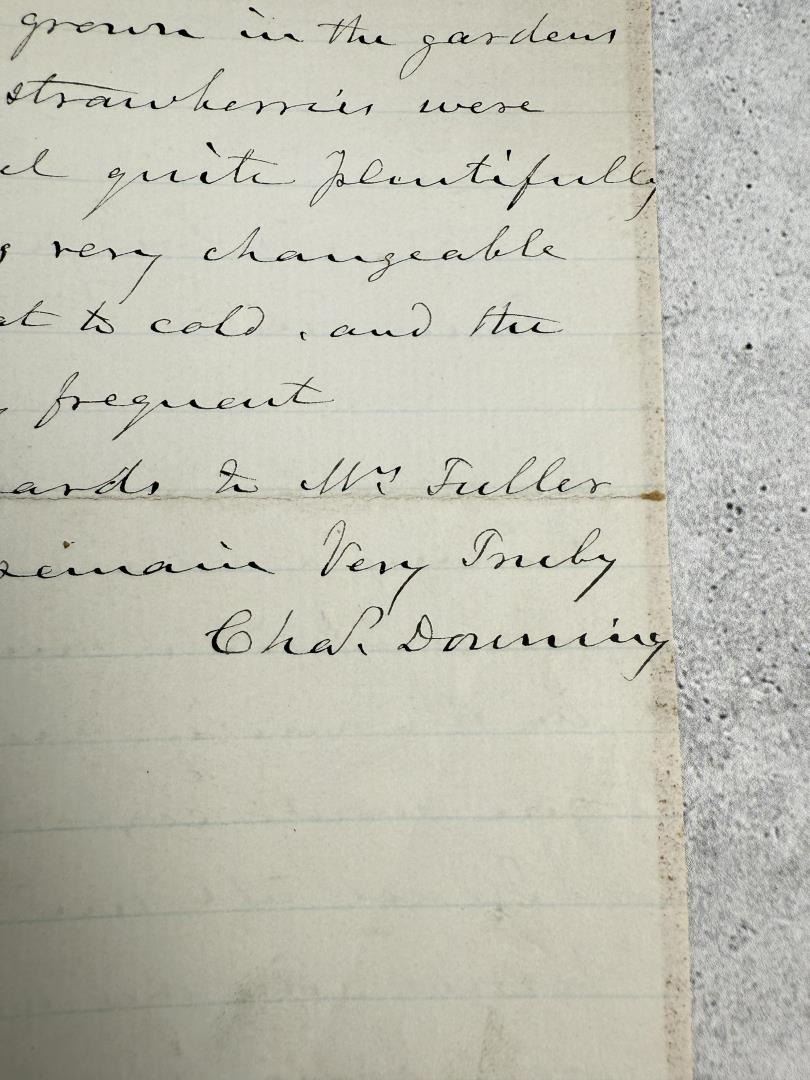 grown in the gardens
strawberries were
quite plentifully
very changeable
to cold, and the
frequent
ards to Mrs Fuller
remain Very Truly
Chas. Downing